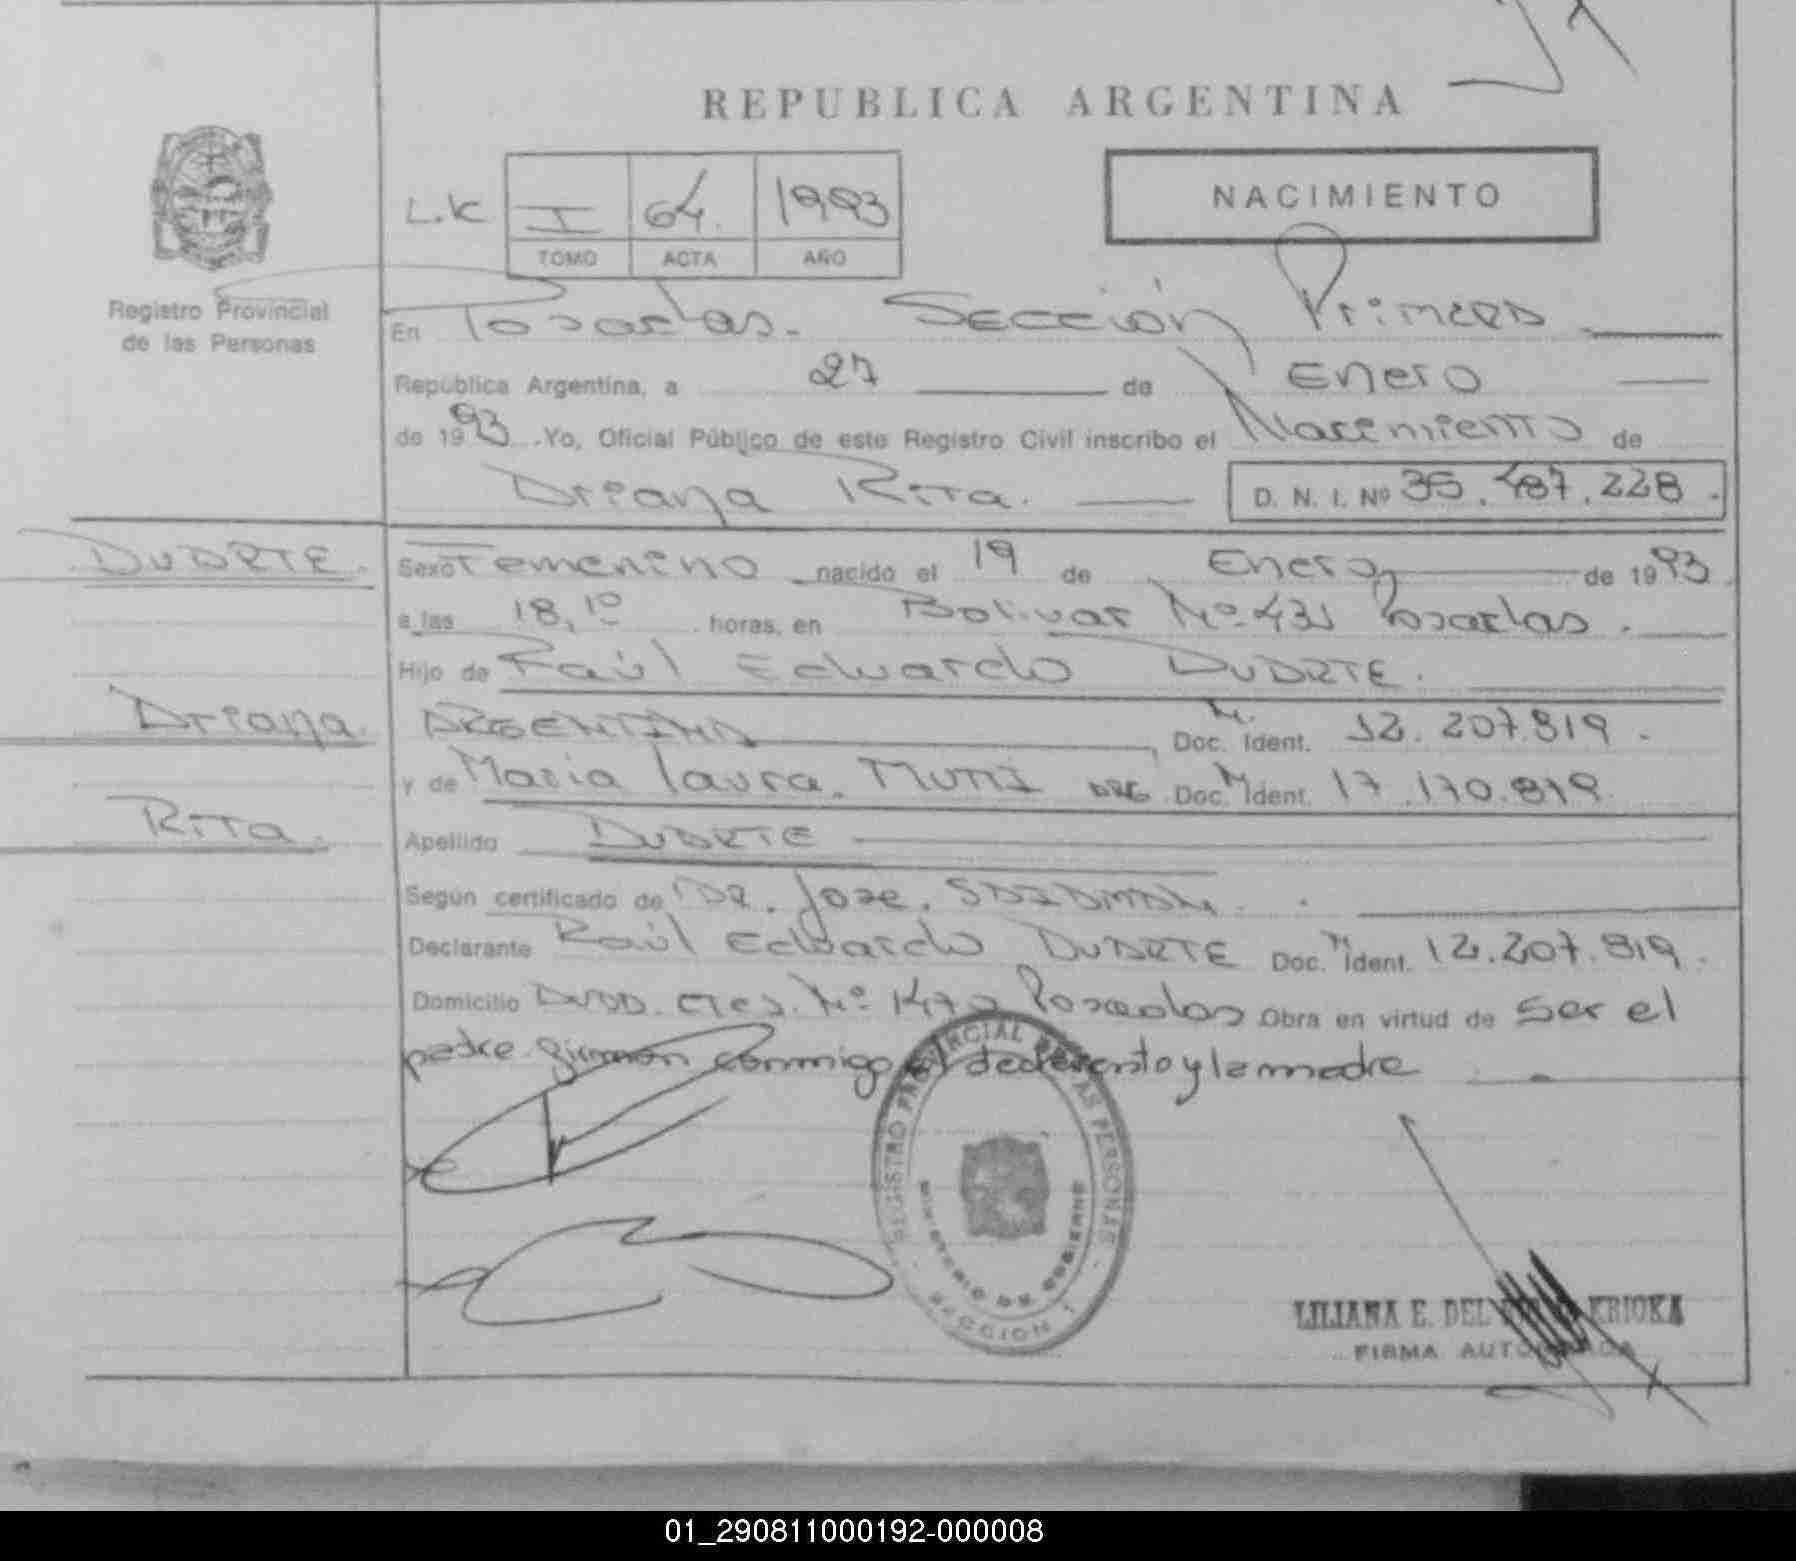 REPUBLICA ARGENTINA
NACIMIENTO
L.K I 64. 1993
TOMO ACTA AÑO
Registro Provincial
de las Personas
En Posadas. Sección Primera
República Argentina, a 27 de Enero
de 1993 . Yo, Oficial Público de este Registro Civil inscribo el Nacimiento de
Driana Rita. D. N. I. Nº 35.487.228.
DUARTE.
Sexo Femenino nacido el 19 de Enero de 1993
a las 18,10 horas, en Bolivar Nº 431 Posadas.
Hijo de Raúl Eduardo DUARTE.
Driana
ARGENTINA, Doc. Ident. 12.207.819.
y de Maria Laura. MUTTI ARG Doc. Ident. 17.170.819.
Rita.
Apellido DUARTE
Según certificado de DR. Jose.
Declarante Raúl Eduardo DUARTE Doc. Ident. 12.207.819.
Domicilio Nº Posadas Obra en virtud de ser el
padre. firman conmigo el declarante y la madre
REGISTRO PROVINCIAL DE LAS PERSONAS
MINISTERIO DE GOBIERNO
SECCION 1
LILIANA E. DEL KRIOKA
FIRMA AUTORIZADA
01_290811000192-000008